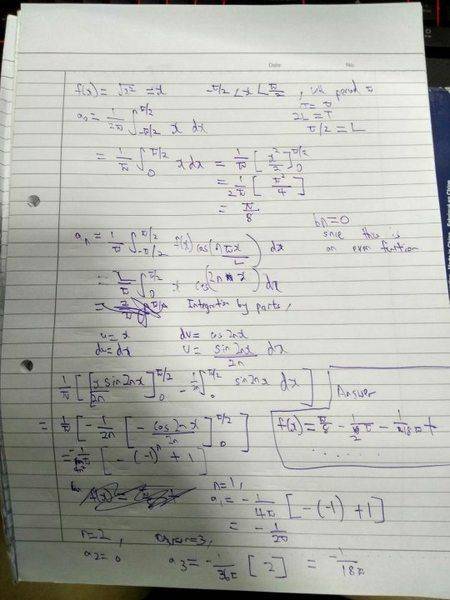 Date No.
f(x) = √x² = x -π/2 < x < π/2, with period π
T = π
2L = T
π/2 = L
a₀ = 1/2π ∫_{-π/2}^{π/2} x dx
= 1/π ∫_0^{π/2} x dx = 1/π [x²/2]_0^{π/2}
= 1/2π [π²/4]
= π/8
bn = 0
since this is
an even function
aₙ = 1/π ∫_{-π/2}^{π/2} f(x) cos(nπx/L) dx
∫_0^{π/2} x cos(2nx) dx
Integration by parts,
u = x dv = cos 2nx
du = dx v = sin 2nx/2n dx
1/π [[x sin 2nx/2n]_0^{π/2} - ∫_0^{π/2} sin 2nx dx]
Answer
= 1/π [-1/2n [-cos 2nx/2n]_0^{π/2}
f(x) = π/8 - 1/2π - 1/18π +
.......
[-(-1)ⁿ + 1]
n = 1,
a₁ = -1/4π [-(-1) + 1]
= -1/2π
n = 2,
a₂ = 0
n = 3,
a₃ = -1/36π [2] = -1/18π